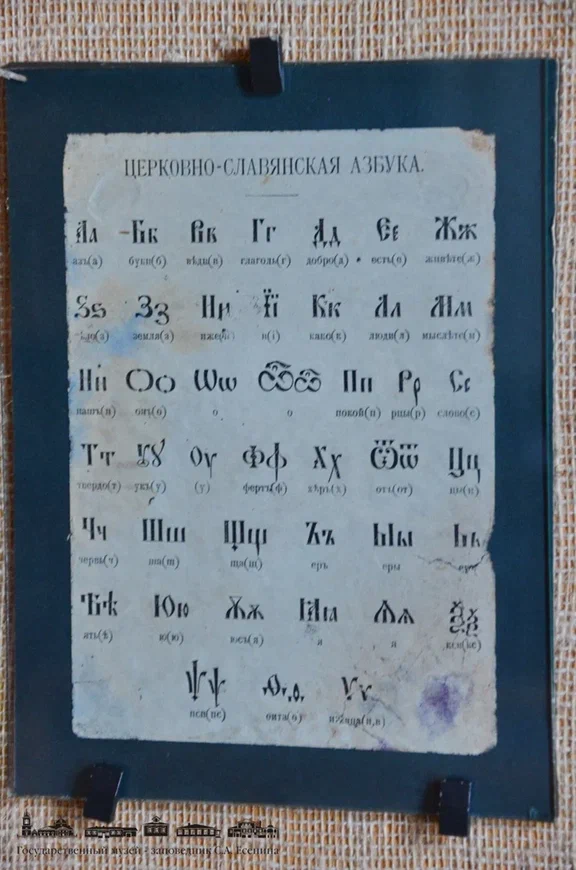 ЦЕРКОВНО-СЛАВЯНСКАЯ АЗБУКА.
Аа Бб Вв Гг Дд Єе Жж
азъ(а) буки(б) вѣди(в) глаголь(г) добро(д) есть(е) живѣте(ж)
Ѕѕ Зз Ии Її Кк Лл Мм
земля(з) иже(и) и(і) како(к) люди(л) мыслѣте(м)
Нн Оо Ѡѡ Ѽѽ Пп Рр Сс
нашъ(н) онъ(о) о о покой(п) рцы(р) слово(с)
Тт Ꙋꙋ Оу Фф Хх Ѿѿ Цц
твердо(т) укъ(у) (у) фертъ(ф) хѣръ(х) отъ(от) цы(ц)
Чч Шш Щщ Ъъ Ыы Ьь
червь(ч) ша(ш) ща(щ) еръ еры
Ѣѣ Юю Ѫѫ Ꙗꙗ Ѧѧ Ѯѯ
ять(ѣ) ю(ю) юсъ(я) я я кси(кс)
Ѱѱ Ѳѳ Ѵѵ
пси(пс) ѳита(ѳ) ижица(и,в)
Государственный музей - заповедник С.А. Есенина